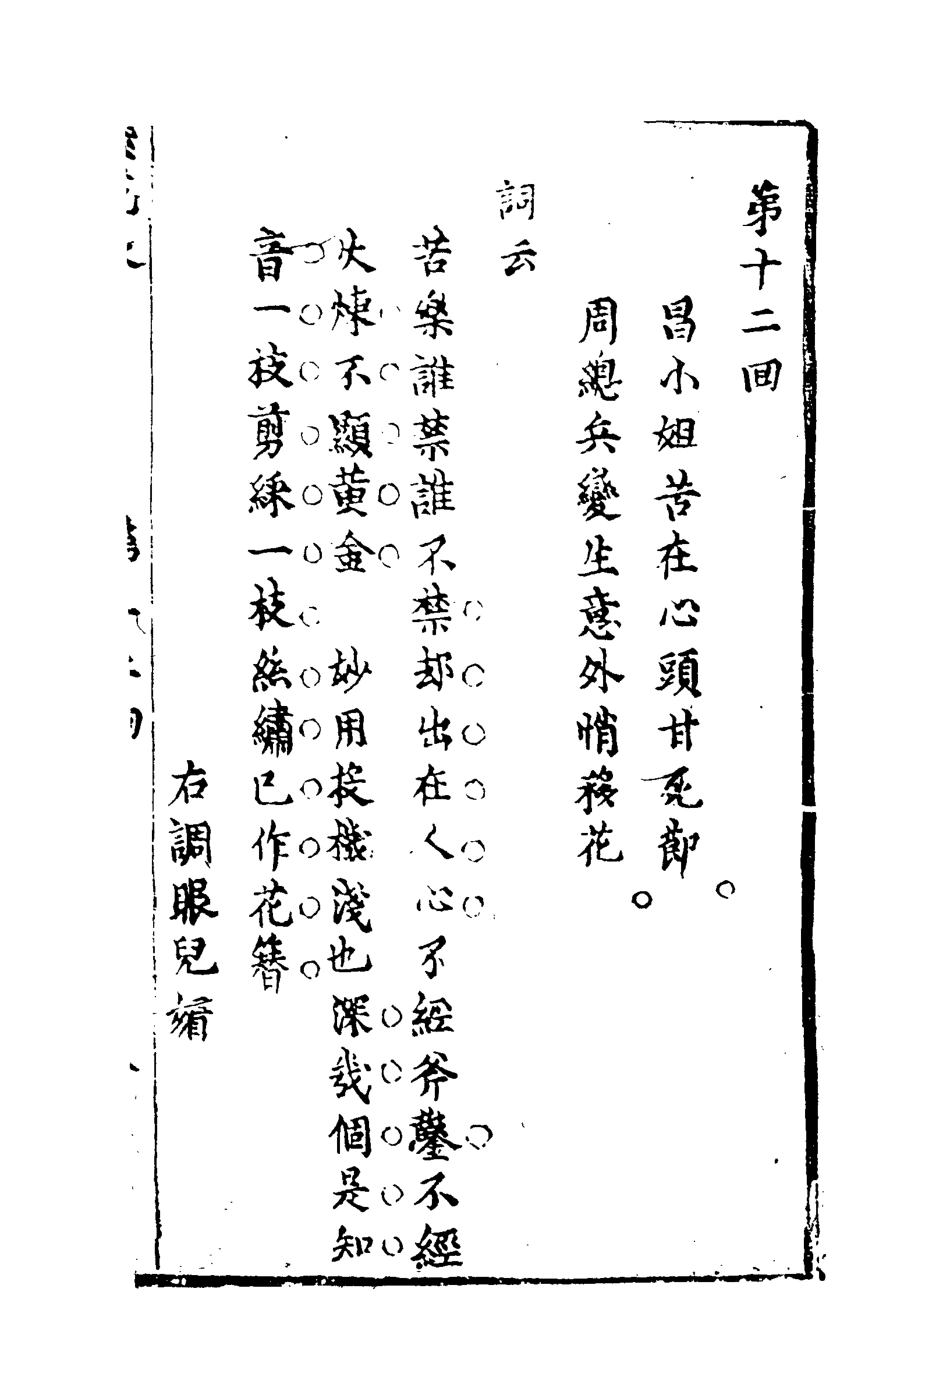 第十二回
昌小姐苦在心頭甘死節
周總兵變生意外悄移花
詞云
苦樂誰禁誰不禁却出在人心不經斧鑿不經
火煉不顯黄金　妙用投機淺也深幾個是知
音一枝剪綵一枝絲繡已作花簪
右調眼兒媚